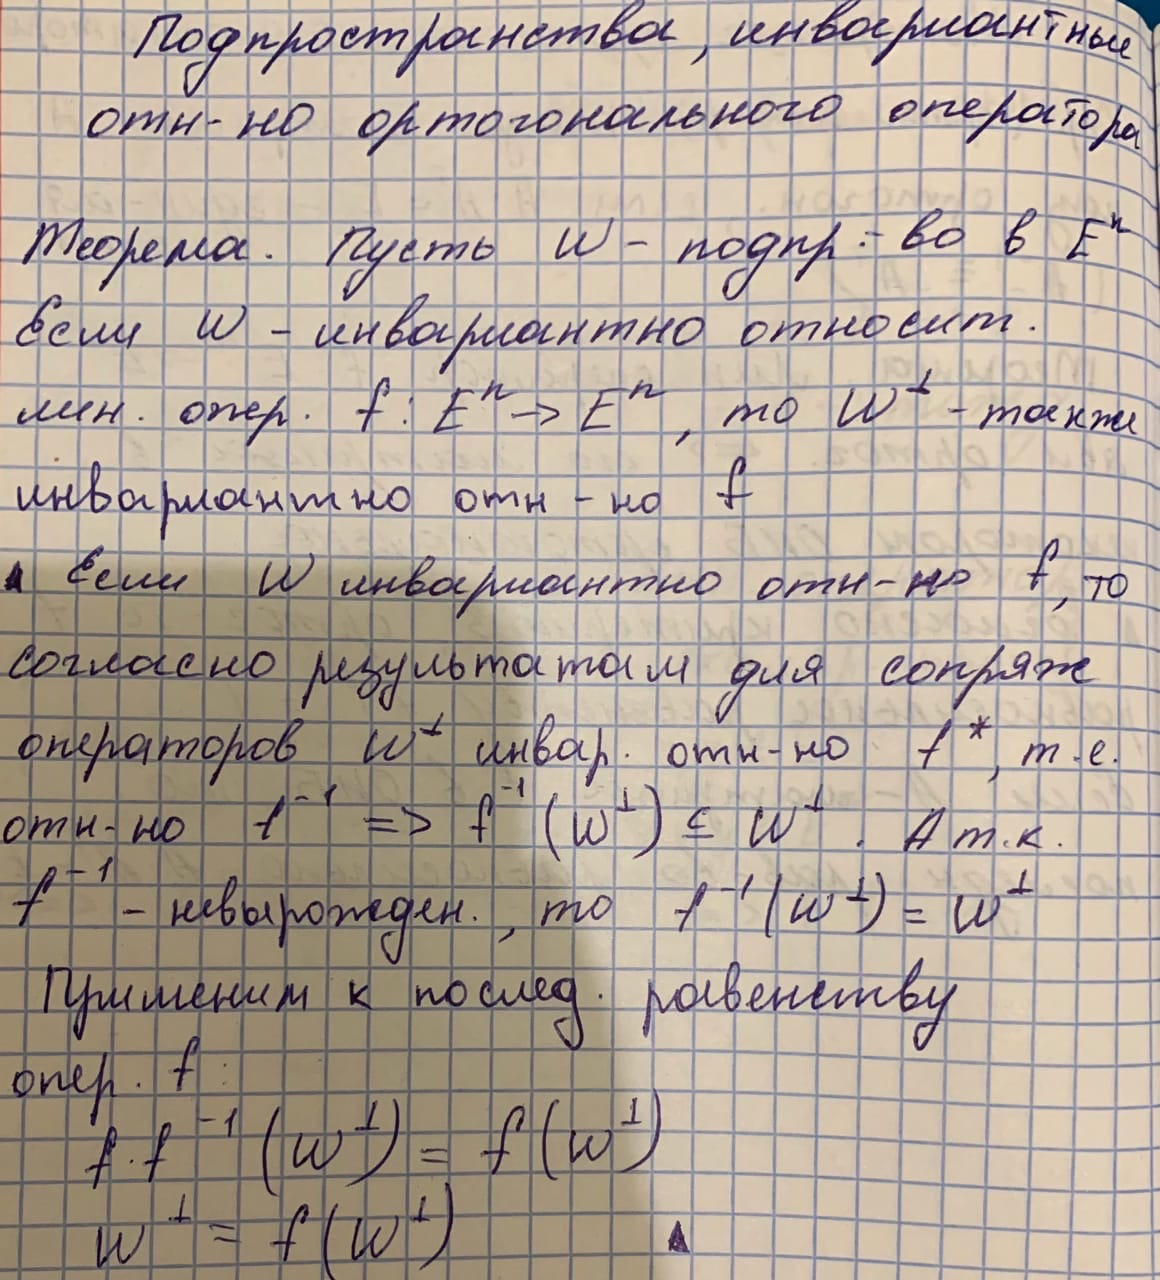 Подпространства, инвариантные
отн-но ортогонального оператора
Теорема. Пусть W - подпр-во в Eⁿ
Если W - инвариантно относит.
лин. опер. f: Eⁿ → Eⁿ, то W^⊥ - также
инвариантно отн-но f
▲ Если W инвариантно отн-но f, то
согласно результатам для сопряж
операторов W^⊥ инвар. отн-но f*, т.е.
отн-но f⁻¹ => f⁻¹(W^⊥) ⊆ W^⊥. А т.к.
f⁻¹ - невырожден., то f⁻¹(W^⊥) = W^⊥
Применим к послед. равенству
опер. f:
f·f⁻¹(W^⊥) = f(W^⊥)
W^⊥ = f(W^⊥) ▲